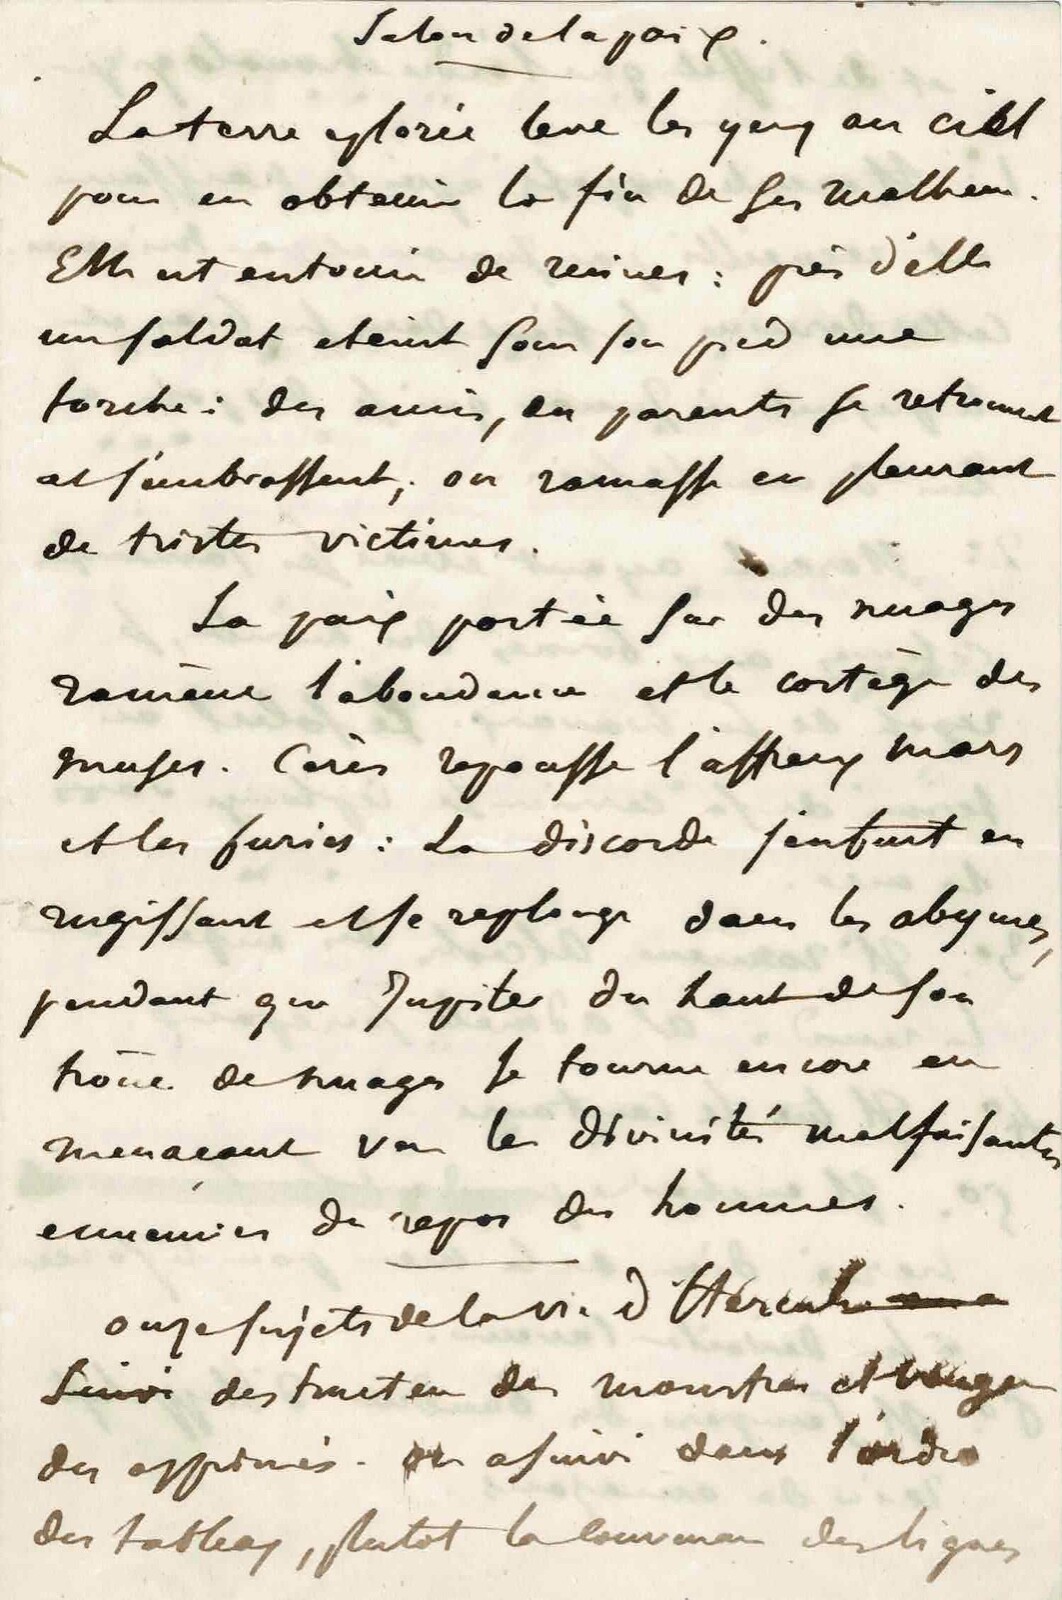 Salon de la paix.
La terre eplorée leve les yeux au ciel
pour en obtenir la fin de ses malheurs.
Elle est entourée de ruines : près d'elle
un soldat eteint sous son pied une
torche : des amis, des parents se retrouvent
et s'embrassent ; on ramasse en pleurant
de tristes victimes.
La paix portée sur des nuages
ramène l'abondance et le cortège des
muses. Cérès repousse l'affreux mars
et les furies : La discorde s'enfuit en
rugissant et se replonge dans les abymes,
pendant que Jupiter du haut de son
trône de nuages se tourne encore en
menaçant vers les divinités malfaisantes
ennemies du repos des hommes.
onze sujets de la vie d'Hercule
Suivi destructeur des monstres et vengeur
des opprimés. on a suivi dans l'ordre
des tableaux, plutot la des lignes